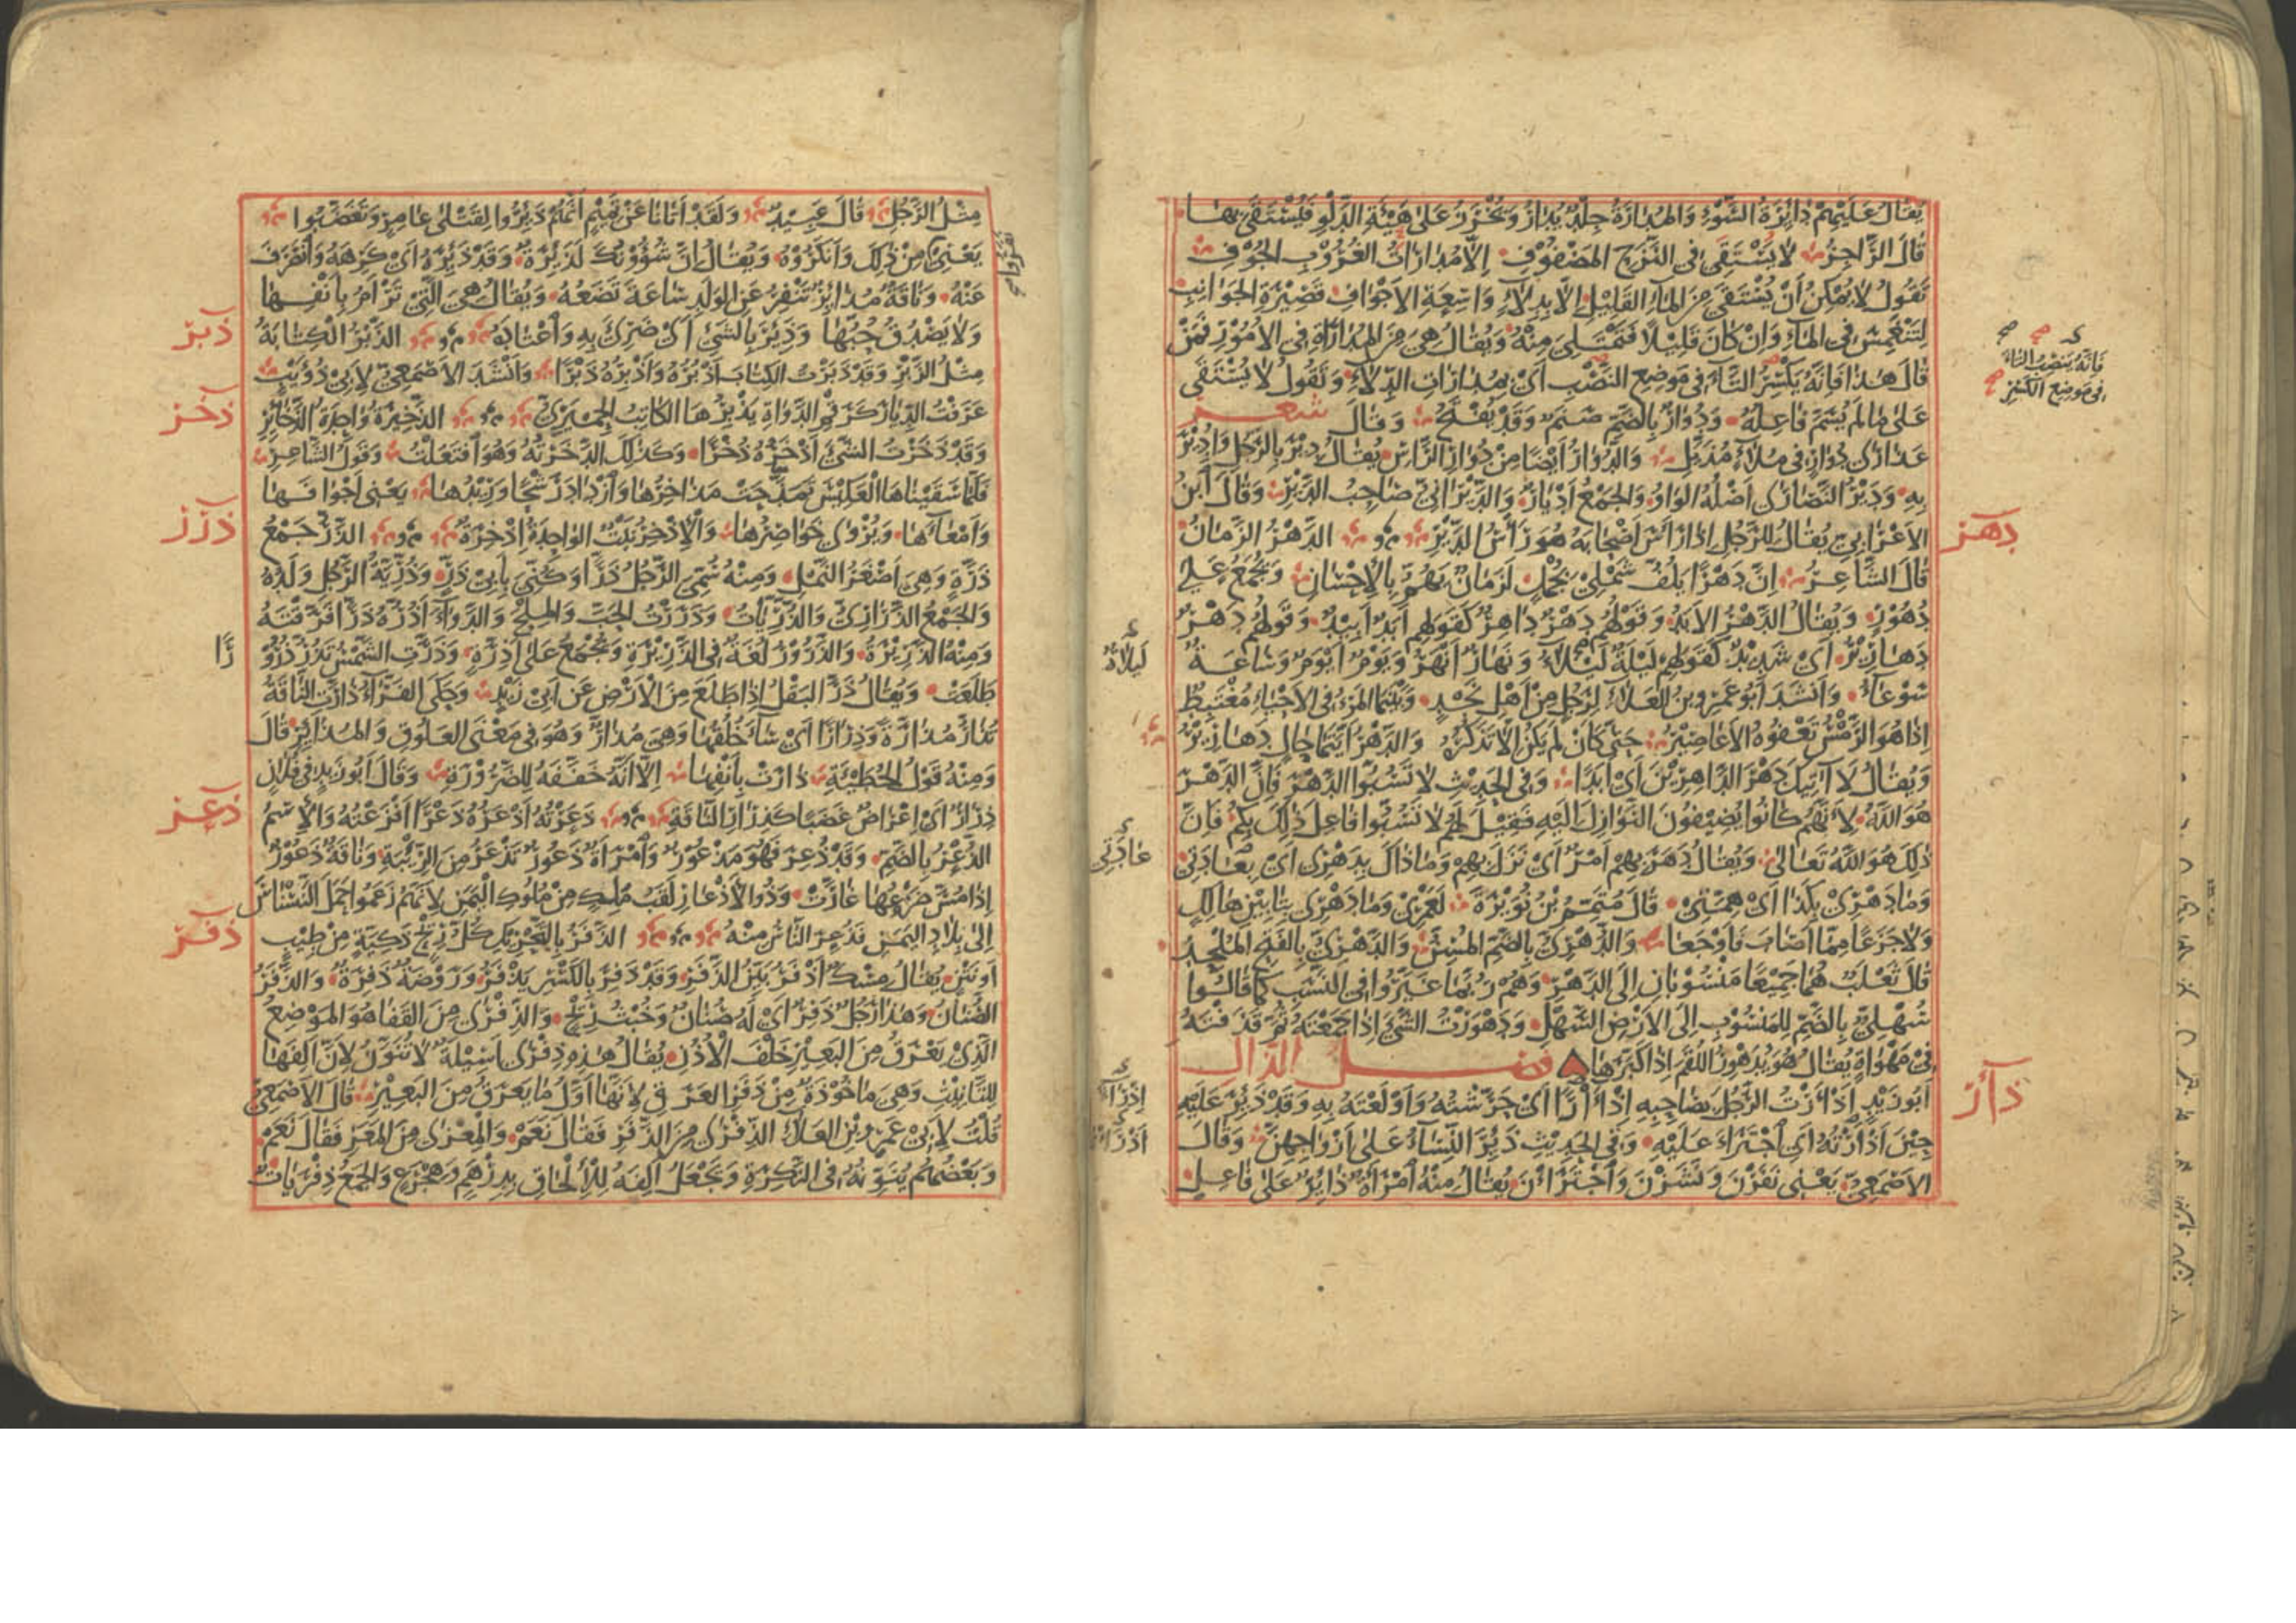 يُقَالُ عَلَيْهِمْ دَائِرَةُ السَّوْءِ وَالمُدَارَةُ جِلْدٌ يُدَارُ وَيُخْرَزُ عَلَى هَيْئَةِ الدَّلْوِ فَيُسْتَقَى بِهَا
قَالَ الرَّاجِزُ لَا يَسْتَقِي فِي النَّزَحِ المَضْفُوفِ إِلَّا مُدَارَاتُ الغُرُوبِ الجُوفِ
تَقُولُ لَا يُمْكِنُ أَنْ يُسْتَقَى مِنَ المَاءِ القَلِيْلِ إِلَّا بِدِلَاءٍ وَاسِعَةِ الأَجْوَافِ قَصِيْرَةِ الجَوَانِبِ
لِتَنْغَمِسَ فِي المَاءِ وَإِنْ كَانَ قَلِيْلًا فَتَمْتَلِئَ مِنْهُ وَيُقَالُ هِيَ مِنَ المُدَارَاةِ فِي الأُمُوْرِ فَمَنْ
قَالَ هَذَا فَإِنَّهُ يَكْسِرُ التَّاءَ فِي مَوْضِعِ النَّصْبِ أَيْ بِمُدَارَاتِ الدِّلَاءِ وَتَقُولُ لَا يُسْتَقَى
فَإِنَّهُ يَنْصِبُ التَّاءَ
فِي مَوْضِعِ الكَسْرِ
عَلَى مَا لَمْ يُسَمَّ فَاعِلُهُ وَدُوَارٌ بِالضَّمِّ صَنَمٌ وَقَدْ يُفْتَحُ وَقَالَ شعر
عَذَارَى دُوَارٍ فِي مُلَاءٍ مُذَيَّلِ وَالدُّوَارُ أَيْضًا مِنْ دُوَارِ الرَّأْسِ يُقَالُ دِيْرَ بِالرَّجُلِ وَأُدِيْرَ
بِهِ وَدَيْرُ النَّصَارَى أَصْلُهُ الوَاوُ وَالجَمْعُ أَدْيَارٌ وَالدَّيْرَانِيُّ صَاحِبُ الدَّيْرِ وَقَالَ ابْنُ
دهر
الأَعْرَابِيِّ يُقَالُ لِلرَّجُلِ إِذَا رَأَسَ أَصْحَابَهُ هُوَ رَأْسُ الدَّيْرِ الدَّهْرُ الزَّمَانُ
قَالَ الشَّاعِرُ إِنَّ دَهْرًا يَلُفُّ شَمْلِي بِجُمْلٍ لَزَمَانٌ يَهُمُّ بِالإِحْسَانِ وَيُجْمَعُ عَلَى
دُهُوْرٍ وَيُقَالُ الدَّهْرُ الأَبَدُ وَقَوْلُهُمْ دَهْرٌ دَاهِرٌ كَقَوْلِهِمْ أَبَدٌ أَبِيْدٌ وَقَوْلُهُمْ دَهْرٌ
دَهَارِيْرُ أَيْ شَدِيْدٌ كَقَوْلِهِمْ لَيْلَةٌ لَيْلَاءُ وَنَهَارٌ أَنْهَرُ وَيَوْمٌ أَيْوَمُ وَسَاعَةٌ
سَوْعَاءُ وَأَنْشَدَ أَبُو عَمْرِو بْنُ العَلَاءِ لِرَجُلٍ مِنْ أَهْلِ نَجْدٍ وَبَيْنَمَا المَرْءُ فِي الأَحْيَاءِ مُغْتَبِطٌ
إِذَا هُوَ الرَّمْسُ تَعْفُوهُ الأَعَاصِيْرُ حَتَّى كَأَنْ لَمْ يَكُنْ إِلَّا تَذَكُّرُهُ وَالدَّهْرُ أَيَّتَمَا حَالٍ دَهَارِيْرُ
وَيُقَالُ لَا آتِيْكَ دَهْرَ الدَّاهِرِيْنَ أَيْ أَبَدًا وَفِي الحَدِيْثِ لَا تَسُبُّوا الدَّهْرَ فَإِنَّ الدَّهْرَ
هُوَ اللّٰهُ لِأَنَّهُمْ كَانُوا يُضِيْفُونَ النَّوَازِلَ إِلَيْهِ فَقِيْلَ لَهُمْ لَا تَسُبُّوا فَاعِلَ ذَلِكَ بِكُمْ فَإِنَّ
ذَلِكَ هُوَ اللّٰهُ تَعَالَى وَيُقَالُ دَهَرَ بِهِمْ أَمْرٌ أَيْ نَزَلَ بِهِمْ وَمَا ذَاكَ بِدَهْرِي أَيْ بِعَادَتِي
عَادَتِي
وَمَا دَهْرِي بِكَذَا أَيْ هِمَّتِي قَالَ مُتَمِّمُ بْنُ نُوَيْرَةَ لَعَمْرِي وَمَا دَهْرِي بِتَأْبِيْنِ هَالِكٍ
وَلَا جَزَعًا مِمَّا أَصَابَ فَأَوْجَعَا وَالدُّهْرِيُّ بِالضَّمِّ المُسِنُّ وَالدَّهْرِيُّ بِالفَتْحِ المُلْحِدُ
قَالَ ثَعْلَبٌ هُمَا جَمِيْعًا مَنْسُوْبَانِ إِلَى الدَّهْرِ وَهُمْ رُبَّمَا غَيَّرُوا فِي النَّسَبِ كَمَا قَالُوا
سُهْلِيٌّ بِالضَّمِّ لِلمَنْسُوْبِ إِلَى الأَرْضِ السَّهْلِ وَدَهْوَرْتُ الشَّيْءَ إِذَا جَمَعْتَهُ ثُمَّ قَذَفْتَهُ
فِي مَهْوَاةٍ يُقَالُ هُوَ يُدَهْوِرُ اللُّقَمَ إِذَا كَبَّرَهَا فصل الذال
ذأر
أَبُو زَيْدٍ أَذْأَرْتُ الرَّجُلَ بِصَاحِبِهِ إِذْآرًا أَيْ حَرَّشْتُهُ وَأَوْلَعْتُهُ بِهِ وَقَدْ ذَئِرَ عَلَيْهِ
حِيْنَ أَذْأَرْتُهُ أَيْ اجْتَرَأَ عَلَيْهِ وَفِي الحَدِيْثِ ذَئِرَ النِّسَاءُ عَلَى أَزْوَاجِهِنَّ وَقَالَ
الأَصْمَعِيُّ يَعْنِي نَفَرْنَ وَنَشَزْنَ وَاجْتَرَأْنَ يُقَالُ مِنْهُ امْرَأَةٌ ذَائِرٌ عَلَى فَاعِلٍ
مِثْلُ الرَّجُلِ قَالَ عَبِيْدٌ وَلَقَدْ أَتَانَا عَنْ تَمِيْمٍ أَنَّهُمْ ذَئِرُوا لِقَتْلَى عَامِرٍ وَتَغَضَّبُوا
يَعْنِي مِنْ ذَلِكَ وَأَنْكَرُوْهُ وَيُقَالُ إِنَّ شُؤُوْنَكَ لَذَئِرَةٌ وَقَدْ ذَئِرَهُ أَيْ كَرِهَهُ وَانْصَرَفَ
عَنْهُ وَنَاقَةٌ مُذَائِرٌ تَنْفِرُ عَنِ الوَلَدِ سَاعَةَ تَضَعُهُ وَيُقَالُ هِيَ الَّتِي تَرْأَمُ بِأَنْفِهَا
ذبر
وَلَا يَصْدُقُ حُبُّهَا وَذَئِرَ بِالشَّيْءِ أَيْ ضَرِيَ بِهِ وَاعْتَادَهُ الذَّبْرُ الكِتَابَةُ
مِثْلُ الزَّبْرِ وَقَدْ ذَبَرْتُ الكِتَابَ أَذْبُرُهُ وَأَذْبِرُهُ ذَبْرًا وَأَنْشَدَ الأَصْمَعِيُّ لِأَبِي ذُؤَيْبٍ
ذخر
عَرَفْتُ الدِّيَارَ كَرَقْمِ الدَّوَاةِ يَذْبِرُهَا الكَاتِبُ الحِمْيَرِيُّ الذَّخِيْرَةُ وَاحِدَةُ الذَّخَائِرِ
وَقَدْ ذَخَرْتُ الشَّيْءَ أَذْخَرُهُ ذُخْرًا وَكَذَلِكَ ادَّخَرْتُهُ وَهُوَ افْتَعَلْتُ وَقَوْلُ الشَّاعِرِ
فَلَمَّا سَقَيْنَاهَا العَكِيْسَ تَمَذَّحَتْ مَذَاخِرُهَا وَازْدَادَ رَشْحًا وَرِيْدُهَا يَعْنِي أَجْوَافَهَا
ذرر
وَأَمْعَاءَهَا وَيُرْوَى خَوَاصِرُهَا وَالإِذْخِرُ نَبْتٌ الوَاحِدَةُ إِذْخِرَةٌ الذَّرُّ جَمْعُ
ذَرَّةٍ وَهِيَ أَصْغَرُ النَّمْلِ وَمِنْهُ سُمِّيَ الرَّجُلُ ذَرًّا وَكُنِّيَ بِأَبِي ذَرٍّ وَذُرِّيَّةُ الرَّجُلِ وَلَدُهُ
وَالجَمْعُ الذَّرَارِيُّ وَالذُّرِّيَّاتُ وَذَرَرْتُ الحَبَّ وَالمِلْحَ وَالدَّوَاءَ أَذُرُّهُ ذَرًّا فَرَّقْتُهُ
وَمِنْهُ الذَّرِيْرَةُ وَالذَّرُوْرُ لُغَةٌ فِي الذَّرِيْرَةِ وَتُجْمَعُ عَلَى أَذِرَّةٍ وَذَرَّتِ الشَّمْسُ تَذُرُّ ذُرُوْ
رًا
طَلَعَتْ وَيُقَالُ ذَرَّ البَقْلُ إِذَا طَلَعَ مِنَ الأَرْضِ عَنْ أَبِي زَيْدٍ وَحَكَى الفَرَّاءُ ذَارَّتِ النَّاقَةُ
تُذَارُّ مُذَارَّةً وَذِرَارًا أَيْ سَاءَ خُلُقُهَا وَهِيَ مُذَارٌّ وَهُوَ فِي مَعْنَى العَلُوْقِ وَالمُذَائِرِ قَالَ
وَمِنْهُ قَوْلُ الحُطَيْئَةِ ذَارَتْ بِأَنْفِهَا إِلَّا أَنَّهُ خَفَّفَهُ لِلضَّرُوْرَةِ وَقَالَ أَبُو زَيْدٍ فِي فُلَانٍ
ذعر
ذِرَارٌ أَيْ إِعْرَاضٌ غَضَبًا كَذِرَارِ النَّاقَةِ ذَعَرْتُهُ أَذْعَرُهُ ذَعْرًا أَفْزَعْتُهُ وَالاِسْمُ
الذُّعْرُ بِالضَّمِّ وَقَدْ ذُعِرَ فَهُوَ مَذْعُوْرٌ وَامْرَأَةٌ ذَعُوْرٌ تُذْعَرُ مِنَ الرِّيْبَةِ وَنَاقَةٌ ذَعُوْرٌ
إِذَا مُسَّ ضَرْعُهَا غَارَّتْ وَذُو الأَذْعَارِ لَقَبُ مَلِكٍ مِنْ مُلُوْكِ اليَمَنِ لِأَنَّهُمْ زَعَمُوا حَمَلَ النَّسْنَاسَ
ذفر
إِلَى بِلَادِ اليَمَنِ فَذُعِرَ النَّاسُ مِنْهُ الذَّفَرُ بِالتَّحْرِيْكِ كُلُّ رِيْحٍ ذَكِيَّةٍ مِنْ طِيْبٍ
أَوْ نَتْنٍ يُقَالُ مِسْكٌ أَذْفَرُ بَيِّنُ الذَّفَرِ وَقَدْ ذَفِرَ بِالكَسْرِ يَذْفَرُ وَرَوْضَةٌ ذَفِرَةٌ وَالذَّفَرُ
الصُّنَانُ وَهَذَا رَجُلٌ ذَفِرٌ أَيْ لَهُ صُنَانٌ وَخُبْثُ رِيْحٍ وَالذِّفْرَى مِنَ القَفَا هُوَ المَوْضِعُ
الَّذِي يَعْرَقُ مِنَ البَعِيْرِ خَلْفَ الأُذُنِ يُقَالُ هَذِهِ ذِفْرَى أَسِيْلَةٌ لَا تُنَوَّنُ لِأَنَّ أَلِفَهَا
لِلتَّأْنِيْثِ وَهِيَ مَأْخُوْذَةٌ مِنْ ذَفَرِ العَرَقِ لِأَنَّهَا أَوَّلُ مَا يَعْرَقُ مِنَ البَعِيْرِ قَالَ الأَصْمَعِيُّ
قُلْتُ لِأَبِي عَمْرِو بْنِ العَلَاءِ الذِّفْرَى مِنَ الذَّفَرِ فَقَالَ نَعَمْ وَالمِعْزَى مِنَ المَعْزِ فَقَالَ نَعَمْ
وَبَعْضُهُمْ يُنَوِّنُهُ فِي النَّكِرَةِ وَيَجْعَلُ أَلِفَهُ لِلْإِلْحَاقِ بِدِرْهَمٍ وَهِجْرَعٍ وَالجَمْعُ ذِفْرَيَاتٌ